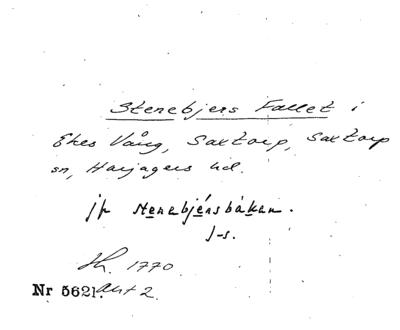 Stenebjers Fallet i
Ekes Vång, Saxtorp, Saxtorp
sn, Harjagers hd.
jfr stenebjérsbáken.
J-s.
Sk. 1770
Nr 5621. akt 2.